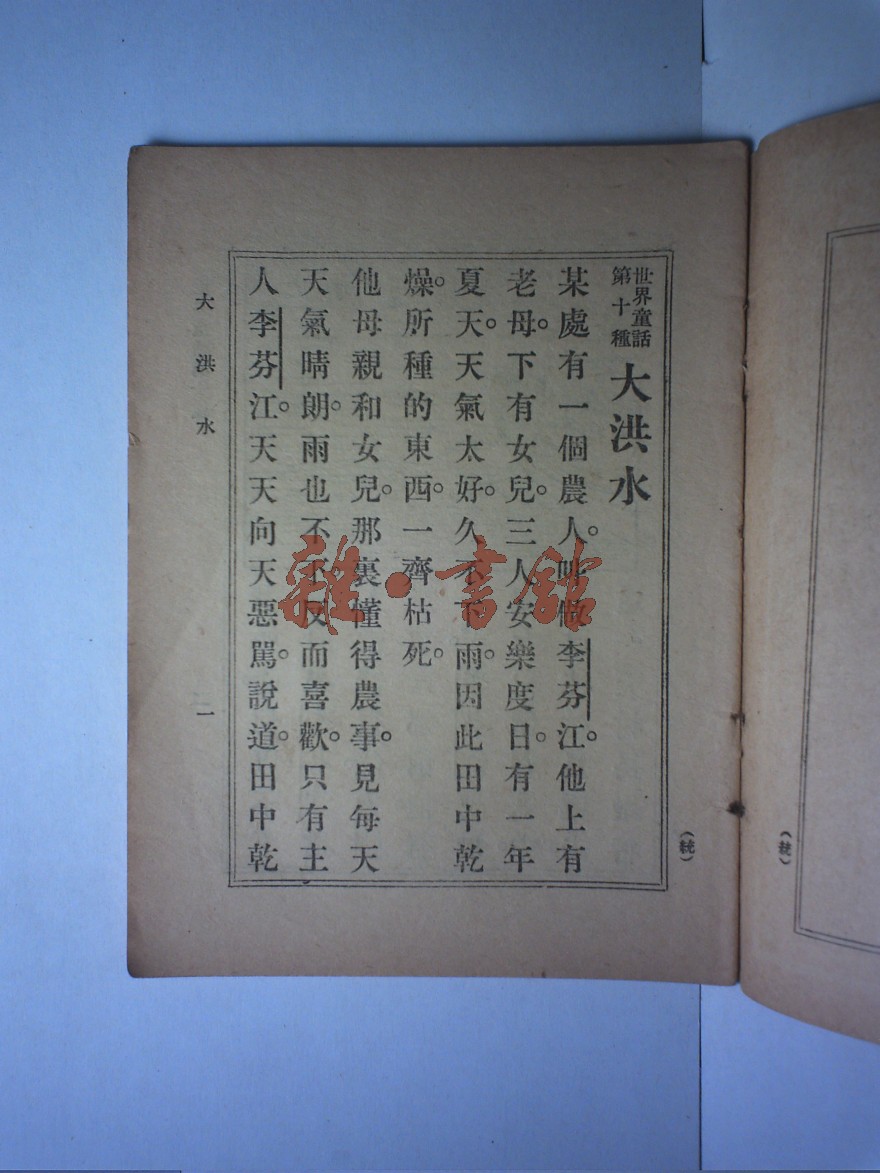 世界童話
第十種
大洪水
某處有一個農人。叫做李芬江。他上有
老母。下有女兒。三人安樂度日。有一年
夏天。天氣太好。久不下雨。因此田中乾
燥。所種的東西。一齊枯死。
他母親和女兒。那裏懂得農事。見每天
天氣晴朗。雨也不下。反而喜歡。只有主
人李芬江。天天向天惡罵。說道。田中乾
大洪水
一
(統)
(統)
雜·書館